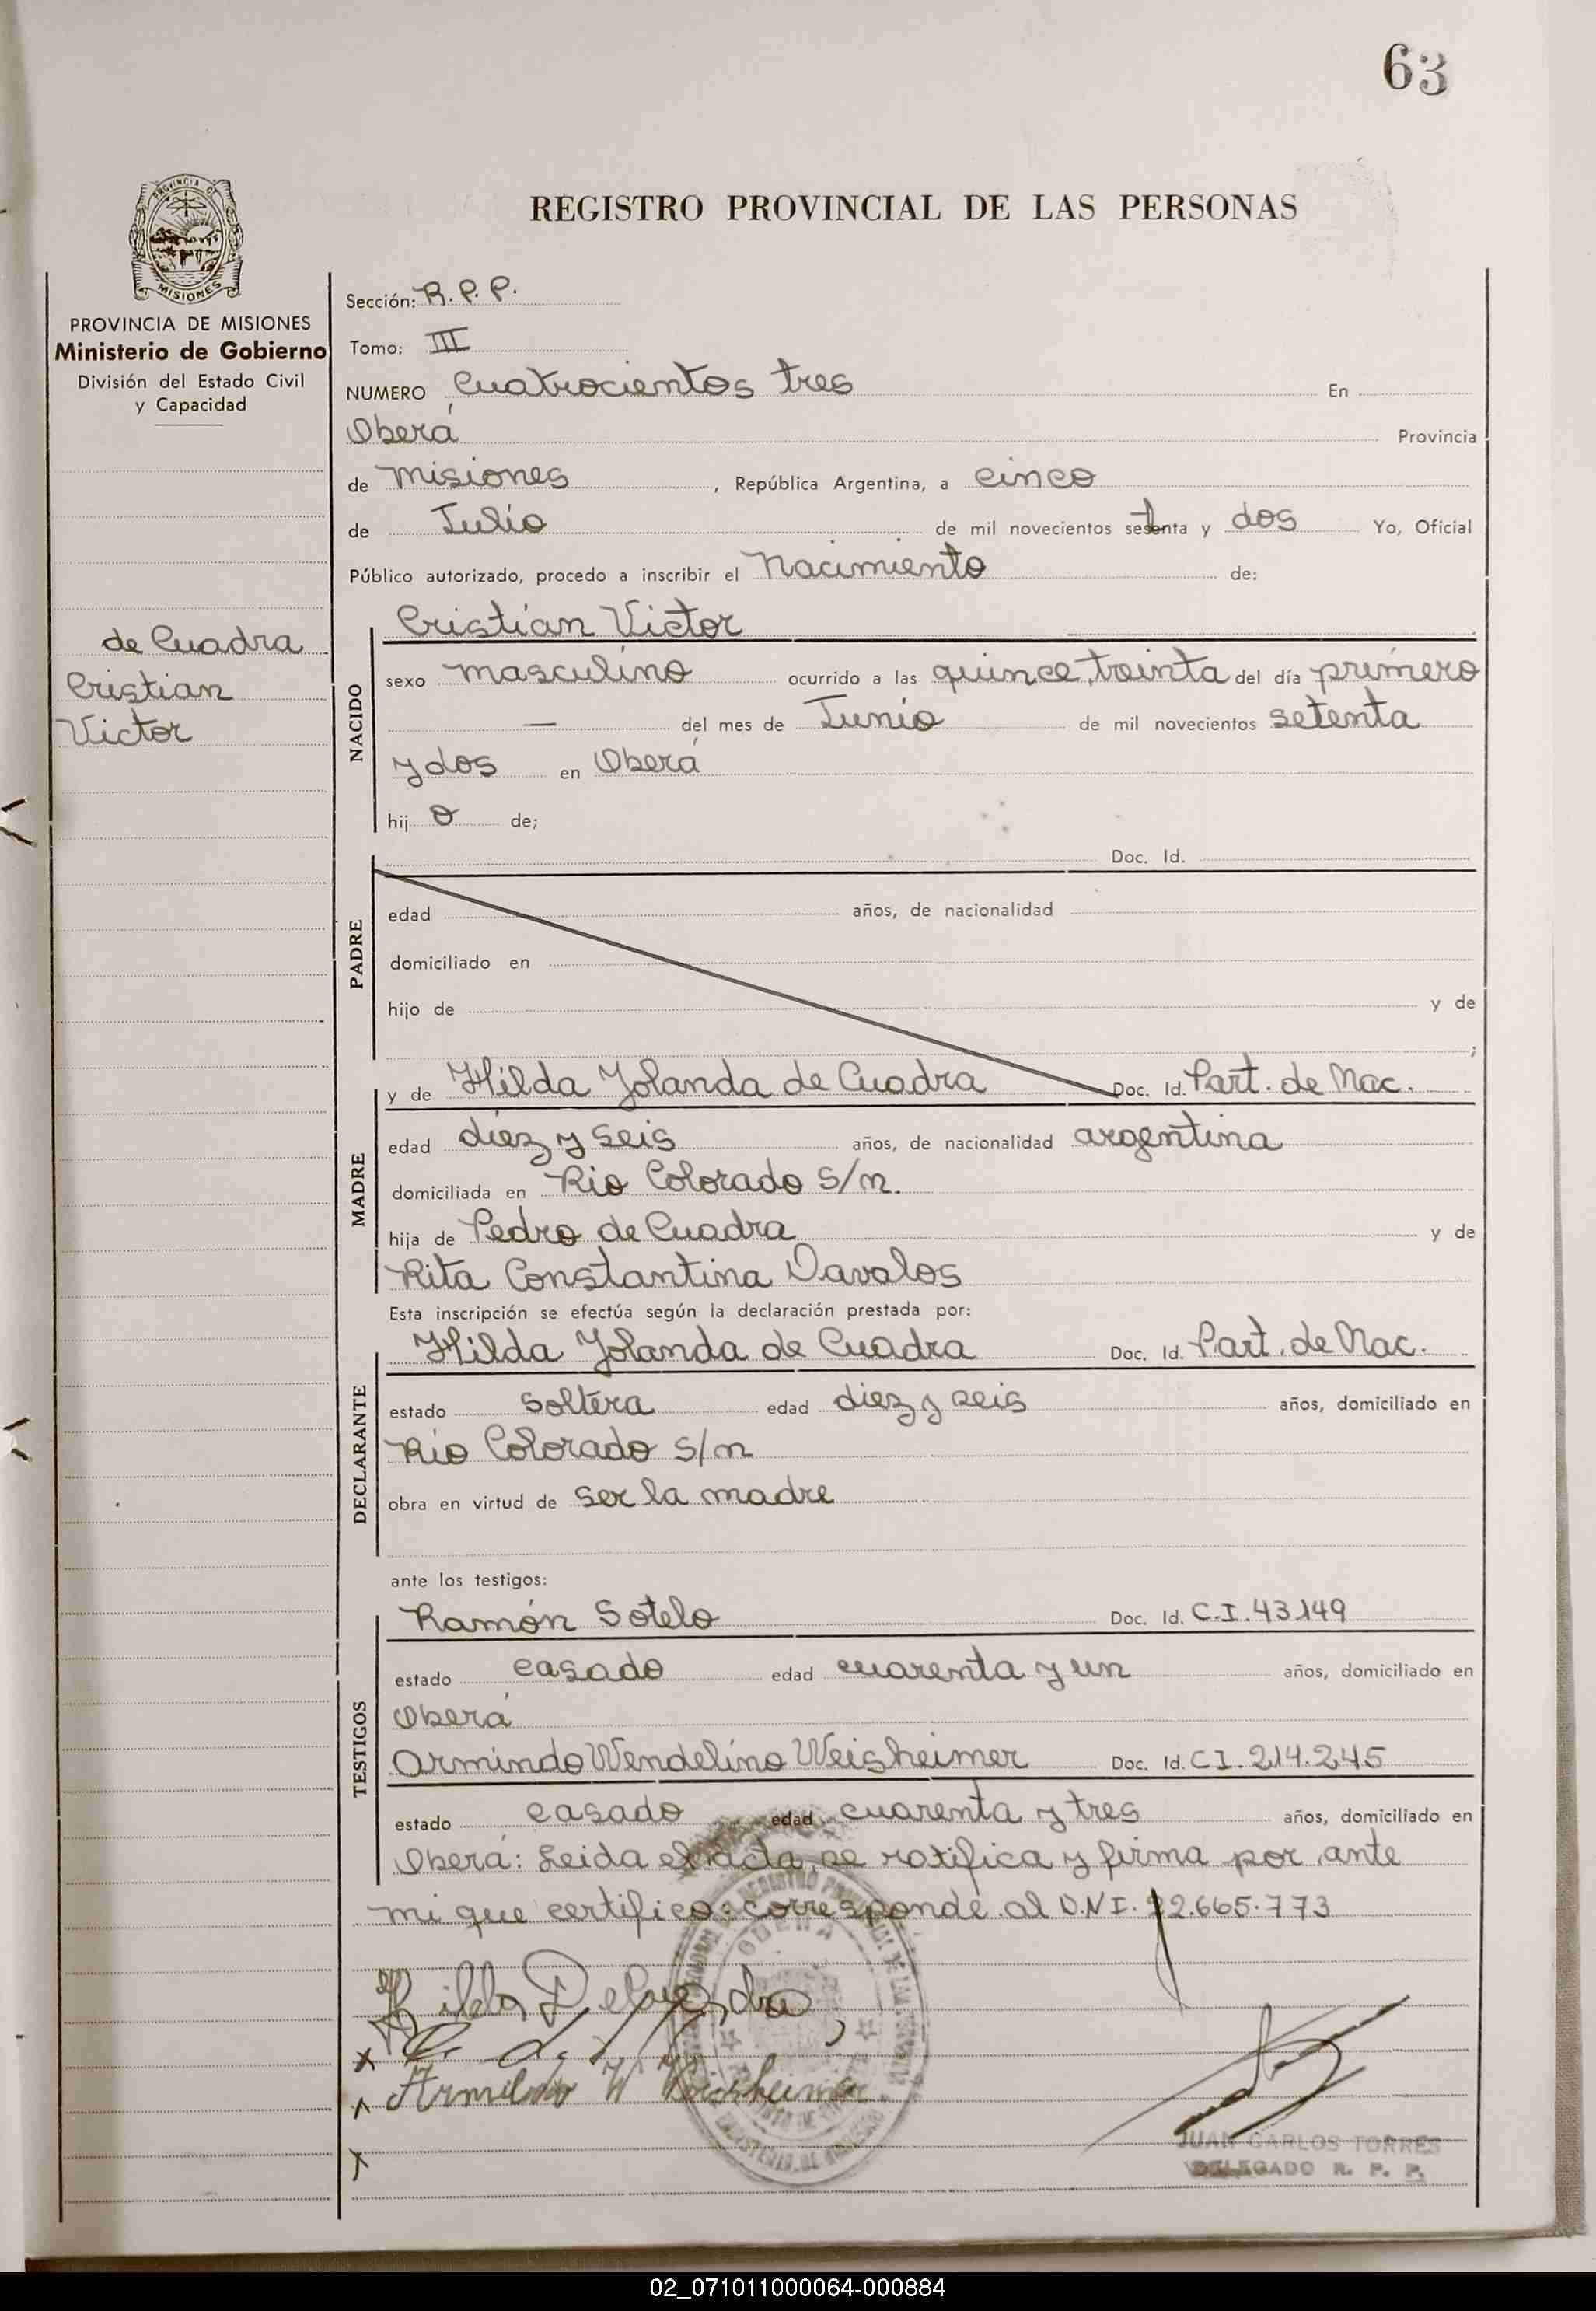 63
REGISTRO PROVINCIAL DE LAS PERSONAS
PROVINCIA DE MISIONES
Ministerio de Gobierno
División del Estado Civil
y Capacidad
de Cuadra
Cristian
Victor
Sección: R.P.P.
Tomo: III
NUMERO Cuatrocientos tres En
Oberá Provincia
de Misiones, República Argentina, a cinco
de Julio de mil novecientos setenta y dos Yo, Oficial
Público autorizado, procedo a inscribir el Nacimiento de:
NACIDO
Cristian Victor
sexo masculino ocurrido a las quince, treinta del día primero
— del mes de Junio de mil novecientos setenta
y dos en Oberá
hij o de;
PADRE
Doc. Id.
edad años, de nacionalidad
domiciliado en
hijo de y de
;
MADRE
y de Hilda Yolanda de Cuadra Doc. Id. Part. de Nac.
edad diez y seis años, de nacionalidad argentina
domiciliada en Rio Colorado s/n.
hija de Pedro de Cuadra y de
Rita Constantina Davalos
Esta inscripción se efectúa según la declaración prestada por:
DECLARANTE
Hilda Yolanda de Cuadra Doc. Id. Part. de Nac.
estado soltera edad diez y seis años, domiciliado en
Rio Colorado s/n
obra en virtud de ser la madre
ante los testigos:
TESTIGOS
Ramón Sotelo Doc. Id. C.I. 43.149
estado casado edad cuarenta y un años, domiciliado en
Oberá
Armindo Wendelino Weisheimer Doc. Id. C.I. 214.245
estado casado edad cuarenta y tres años, domiciliado en
Oberá: Leida el acta, se ratifica y firma por ante
mi que certifico: corresponde al D.N.I. 22.665.773
Hilda De Cuadra
W Weisheimer
JUAN CARLOS TORRES
DELEGADO R. P. P.
02_071011000064-000884